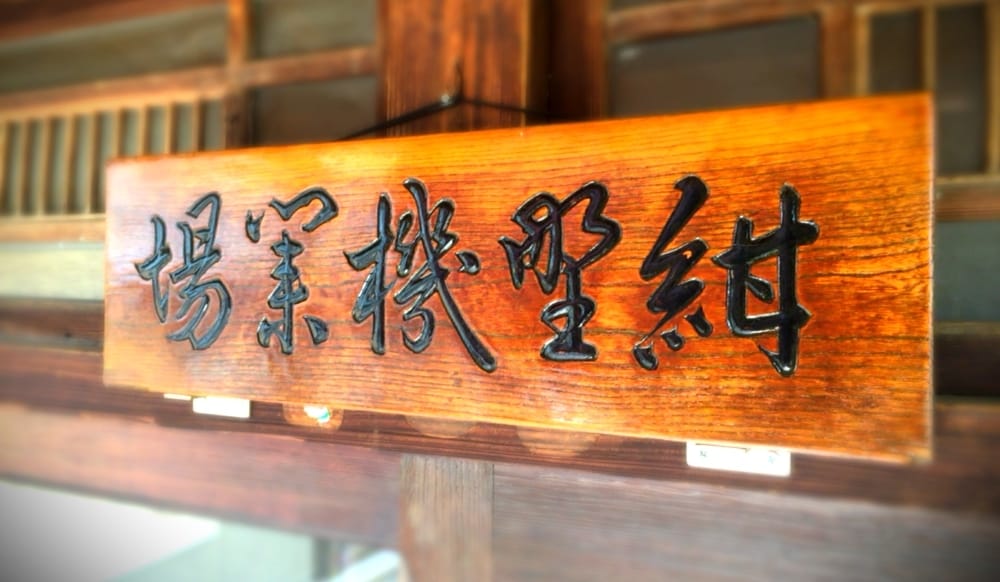 紺野機業場